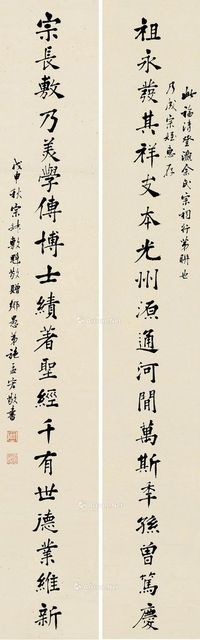 此福清登瀛余氏宗祠行第聯也
乃成宗姪惠存
祖永發其祥支本光州源通河間萬斯秊孫曾篤慶
宗長敷乃美學傳博士績著聖經千有世德業維新
戊申秋宗敬贈鄉愚弟施孟宏敬書